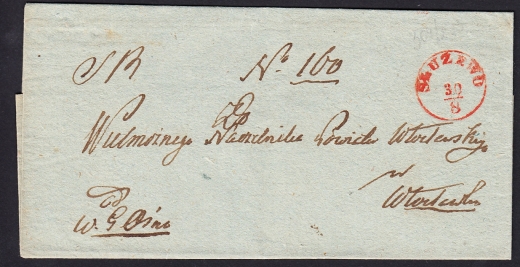 SR № 160
SŁUŻEWO
30
8
Wielmożnego Naczelnika Powiatu Włocławskiego
w
Włocławku
od
W. G.